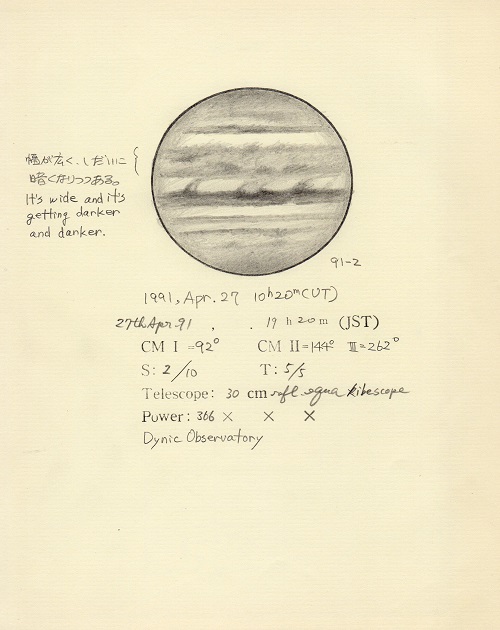 幅が広く、しだいに
暗くなりつつある。
It's wide and it's
getting darker
and darker.
91-2
1991, Apr. 27 10h20m(UT)
27th Apr. 91 , . 19 h 20 m (JST)
CM I =92° CM II=144° III=262°
S: 2/10 T: 5/5
Telescope: 30 cm refl
Power: 366 × × ×
Dynic Observatory